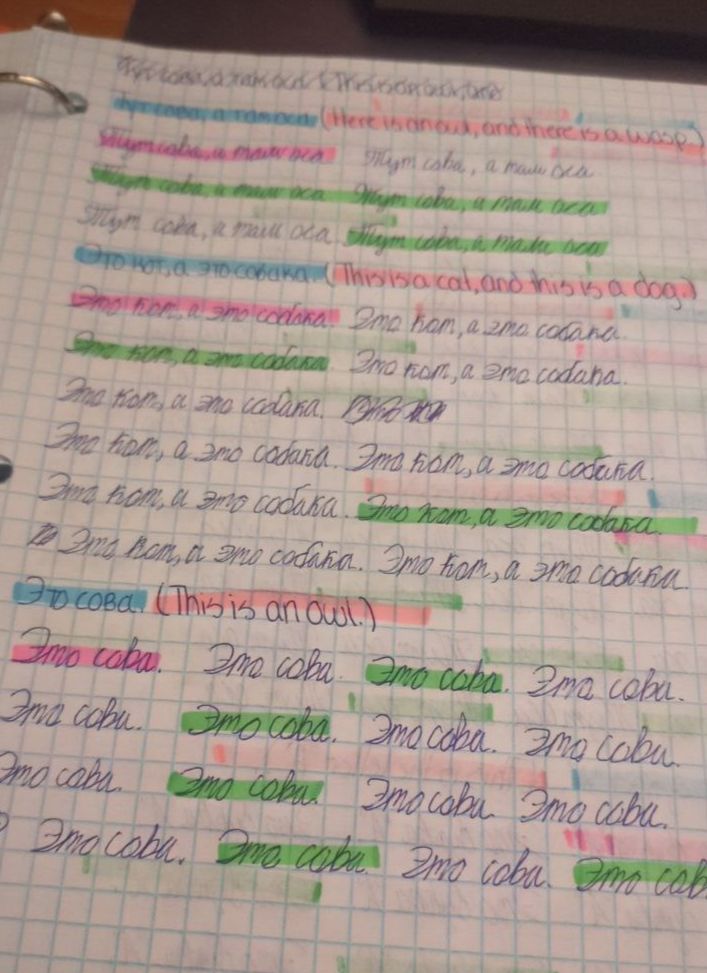 Тут сова, а там оса. (Here is an owl, and there is a wasp.)
Тут сова, а там оса Тут сова, а там оса
Тут сова, а там оса Тут сова, а там оса
Тут сова, а там оса. Тут сова, а там оса
Это кот, а это собака. (This is a cat, and this is a dog.)
Это кот, а это собака. Это кот, а это собака.
Это кот, а это собака. Это кот, а это собака.
Это кот, а это собака.
Это кот, а это собака. Это кот, а это собака.
Это кот, а это собака. Это кот, а это собака.
Это кот, а это собака. Это кот, а это собака.
Это сова. (This is an owl.)
Это сова. Это сова. Это сова. Это сова.
Это сова. Это сова. Это сова. Это сова.
Это сова. Это сова. Это сова. Это сова.
Это сова. Это сова. Это сова. Это сов